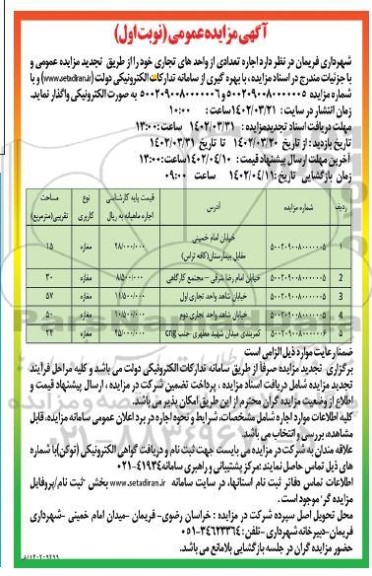 آگهی مزایده عمومی (نوبت اول)
شهرداری فریمان در نظر دارد اجاره تعدادی از واحد های تجاری خود را از طریق تجدید مزایده عمومی و
با جزئیات مندرج در اسناد مزایده ، با بهره گیری از سامانه تدارکات الکترونیکی دولت (www.setadiran.ir) و با
شماره مزایده ۵۰۰۲۰۹۰۰۸۰۰۰۰۰۰۵ و ۵۰۰۲۰۹۰۰۸۰۰۰۰۰۰۶ به صورت الکترونیکی واگذار نماید.
زمان انتشار در سایت : ۱۴۰۲/۰۳/۲۱ ساعت : ۱۰:۰۰
مهلت دریافت اسناد تجدیدمزایده : ۱۴۰۲/۰۳/۳۱ ساعت : ۱۳:۰۰
تاریخ بازدید : از تاریخ ۱۴۰۲/۰۳/۲۰ تا تاریخ ۱۴۰۲/۰۳/۳۱
آخرین مهلت ارسال پیشنهاد قیمت : ۱۴۰۲/۰۴/۱۰ ساعت : ۱۳:۰۰
زمان بازگشایی تاریخ : ۱۴۰۲/۰۴/۱۱ ساعت ۰۹:۰۰
ردیف شماره مزایده آدرس قیمت پایه کارشناسی اجاره ماهیانه به ریال نوع کاربری مساحت تقریبی(مترمربع)
۵۰۰۲۰۹۰۰۸۰۰۰۰۰۰۵ خیابان امام خمینی مقابل بیمارستان(کافه تراس) ۲۸/۰۰۰/۰۰۰ مغازه ۱۵
2 ۵۰۰۲۰۹۰۰۸۰۰۰۰۰۰۵ خیابان امام رضا شرقی – مجتمع کارگاهی ۸/۵۰۰/۰۰۰ مغازه ۳۰
3 ۵۰۰۲۰۹۰۰۸۰۰۰۰۰۰۵ خیابان شاهد واحد تجاری اول ۱۱/۵۰۰/۰۰۰ مغازه ۵۷
4 ۵۰۰۲۰۹۰۰۸۰۰۰۰۰۰۵ خیابان شاهد واحد تجاری دوم ۱۰/۵۰۰/۰۰۰ مغازه ۵۰
5 ۵۰۰۲۰۹۰۰۸۰۰۰۰۰۰۶ کمربندی میدان شهید مطهری جنب cng ۲۵/۰۰۰/۰۰۰ مغازه ۲۴
ضمنا رعایت موارد ذیل الزامی است
برگزاری تجدید مزایده صرفا از طریق سامانه تدارکات الکترونیکی دولت می باشد و کلیه مراحل فرآیند
تجدید مزایده شامل دریافت اسناد مزایده ، پرداخت تضمین شرکت در مزایده ، ارسال پیشنهاد قیمت و
اطلاع از وضعیت مزایده گران محترم از این طریق امکان پذیر می باشد.
کلیه اطلاعات موارد اجاره شامل مشخصات، شرایط و نحوه اجاره در برد اعلان عمومی سامانه مزایده، قابل
مشاهده، بررسی و انتخاب می باشد.
علاقه مندان به شرکت در مزایده می بایست جهت ثبت نام و دریافت گواهی الکترونیکی (توکن) با شماره
های ذیل تماس حاصل نمایند :مرکز پشتیبانی و راهبری سامانه ۴۱۹۳۴-۰۲۱
اطلاعات تماس دفاتر ثبت نام استانها، در سایت سامانه www.setadiran.ir بخش "ثبت نام/پروفایل
مزایده گر" موجود است .
محل تحویل اصل سپرده شرکت در مزایده : خراسان رضوی- فریمان -میدان امام خمینی –شهرداری
فریمان-دبیرخانه شهرداری -تلفن: ۳۴۶۲۳۳۶۴-۰۵۱
حضور مزایده گران در جلسه بازگشایی بلامانع می باشد.